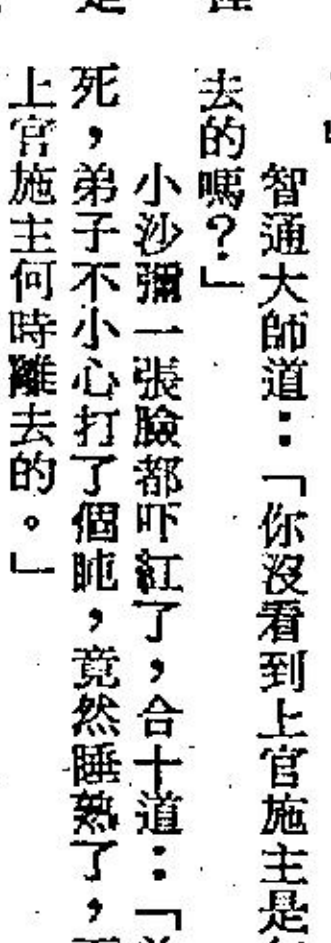 智通大師道：「你沒看到上官施主是
去的嗎？」
小沙彌一張臉都吓紅了，合十道：「
死，弟子不小心打了個盹，竟然睡熟了，
上官施主何時離去的。」